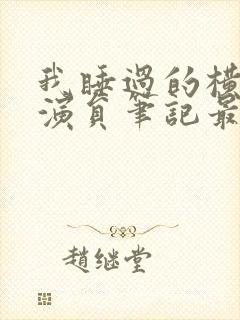 我睡過的橫
演員筆記最
趙继堂